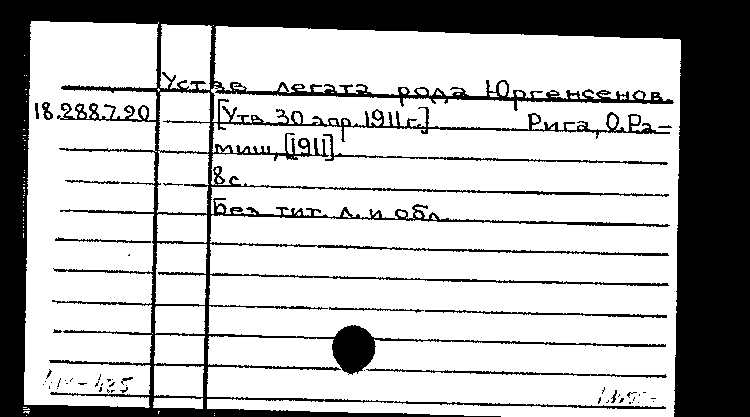 Устав легата рода Юргенсенов.
18.288.7.90 [Утв. 30 апр. 1911 г.] Рига, О.Ра-
миш, [1911].
8 с.
Без тит. л. и обл.